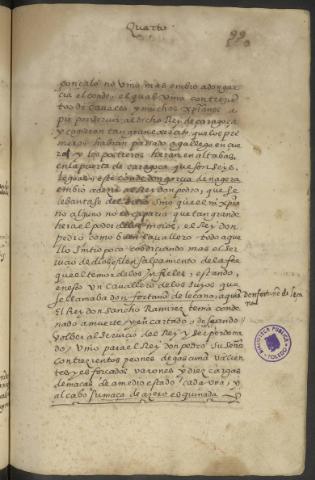 Quarto
99
gonçalo no vino mas embio a don gar
cia el conde, el qual vino con trezien
tos de cavallo y muchos xpianos a
pie por servir al dicho Rey de çaragoça
y vinieron tan grande que los pri
meros habian passado a gallego en cue
ra y los postreros heran en altabas,
en la puerta de çaragoça, que son seys
leguas, y este conde don garcia de nagera
embio a dezir al Rey don pedro, que se
levantase del sitio sino que el ni xpia
no alguno no escaparia que tan grande
hera el poder de los moros, y el Rey don
pedro como buen cavallero todo aque
llo tubo poco cobdiciando mas el ser
vicio de dios y el ensalçamiento de la fee
que el temor de los ynfieles, y estando,
en esto un cavallero de los suyos que
se llamaba don fortuno de lizana, a quien
El Rey don sancho Ramirez tenia conde
nado a muerte y encartado, deseando
volver al servicio del Rey y ser perdona
do, vino para el Rey don pedro su señor
con trezientos peones de gascuña valien
tes y esforçados varones y diez cargas
de maças de a medio estado cada una, y
al cabo su maça de azero esquinada
don fortuno de
BIBLIOTECA PUBLICA
TOLEDO